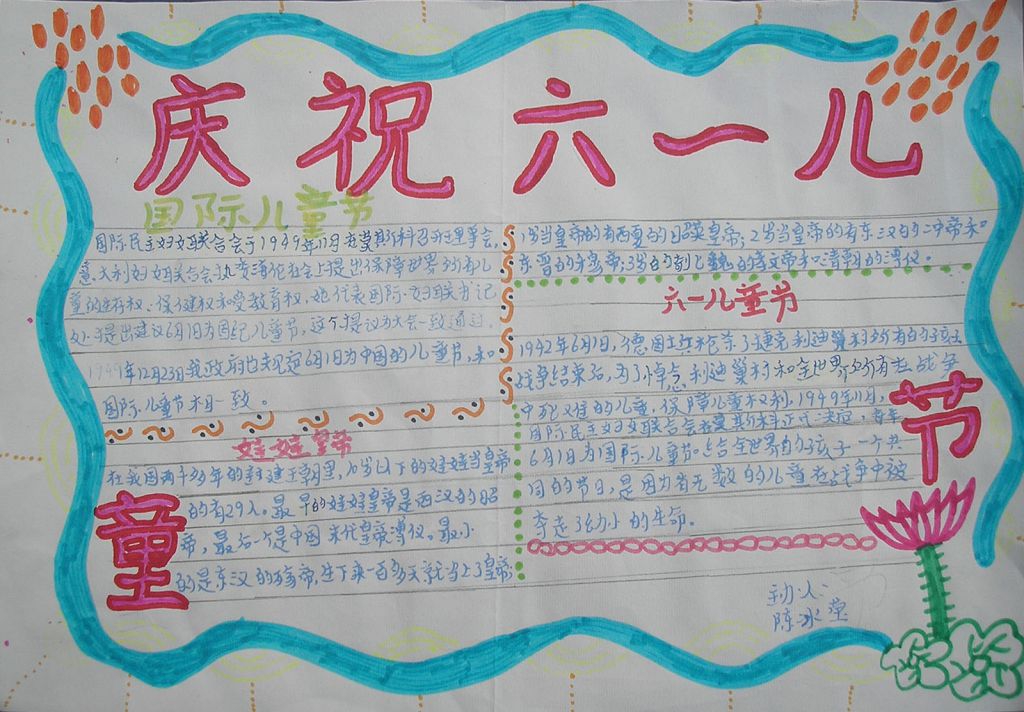 庆祝六一儿
童
节
国际儿童节
国际民主妇女联合会于1949年11月在莫斯科召开理事会,
意大利妇女联合会执委浦伦社会上提出保障世界所有儿
童的生存权、保健权和受教育权,她代表国际妇联书记
处,提出建议6月1日为国纪儿童节,这个提议为大会一致通过。
1949年12月23日我政府也规定6月1日为中国的儿童节,和
国际儿童节相一致。
娃娃皇帝
在我国两千多年的封建王朝里,10岁以下的娃娃当皇帝
的有29人。最早的娃娃皇帝是西汉的昭
帝,最后一个是中国末代皇帝溥仪。最小
的是东汉的殇帝,生下来一百多天就当上了皇帝;
1岁当皇帝的有西夏的昭英皇帝;2岁当皇帝的有东汉的冲帝和
东晋的穆帝;3岁的则北魏的孝文帝和清朝的溥仪。
六一儿童节
1942年6月1日,德国法西斯杀了捷克利迪巢村所有的孩子
战争结束后,为了悼念利迪巢村和全世界所有在战争
中死难的儿童,保障儿童权利,1949年11月,
国际民主妇女联合会在莫斯科正式决定,每年
6月1日为国际儿童节。给全世界的孩子一个共
同的节日,是因为有无数的儿童在战争中被
夺走弱小的生命。
办人:
陈冰莹